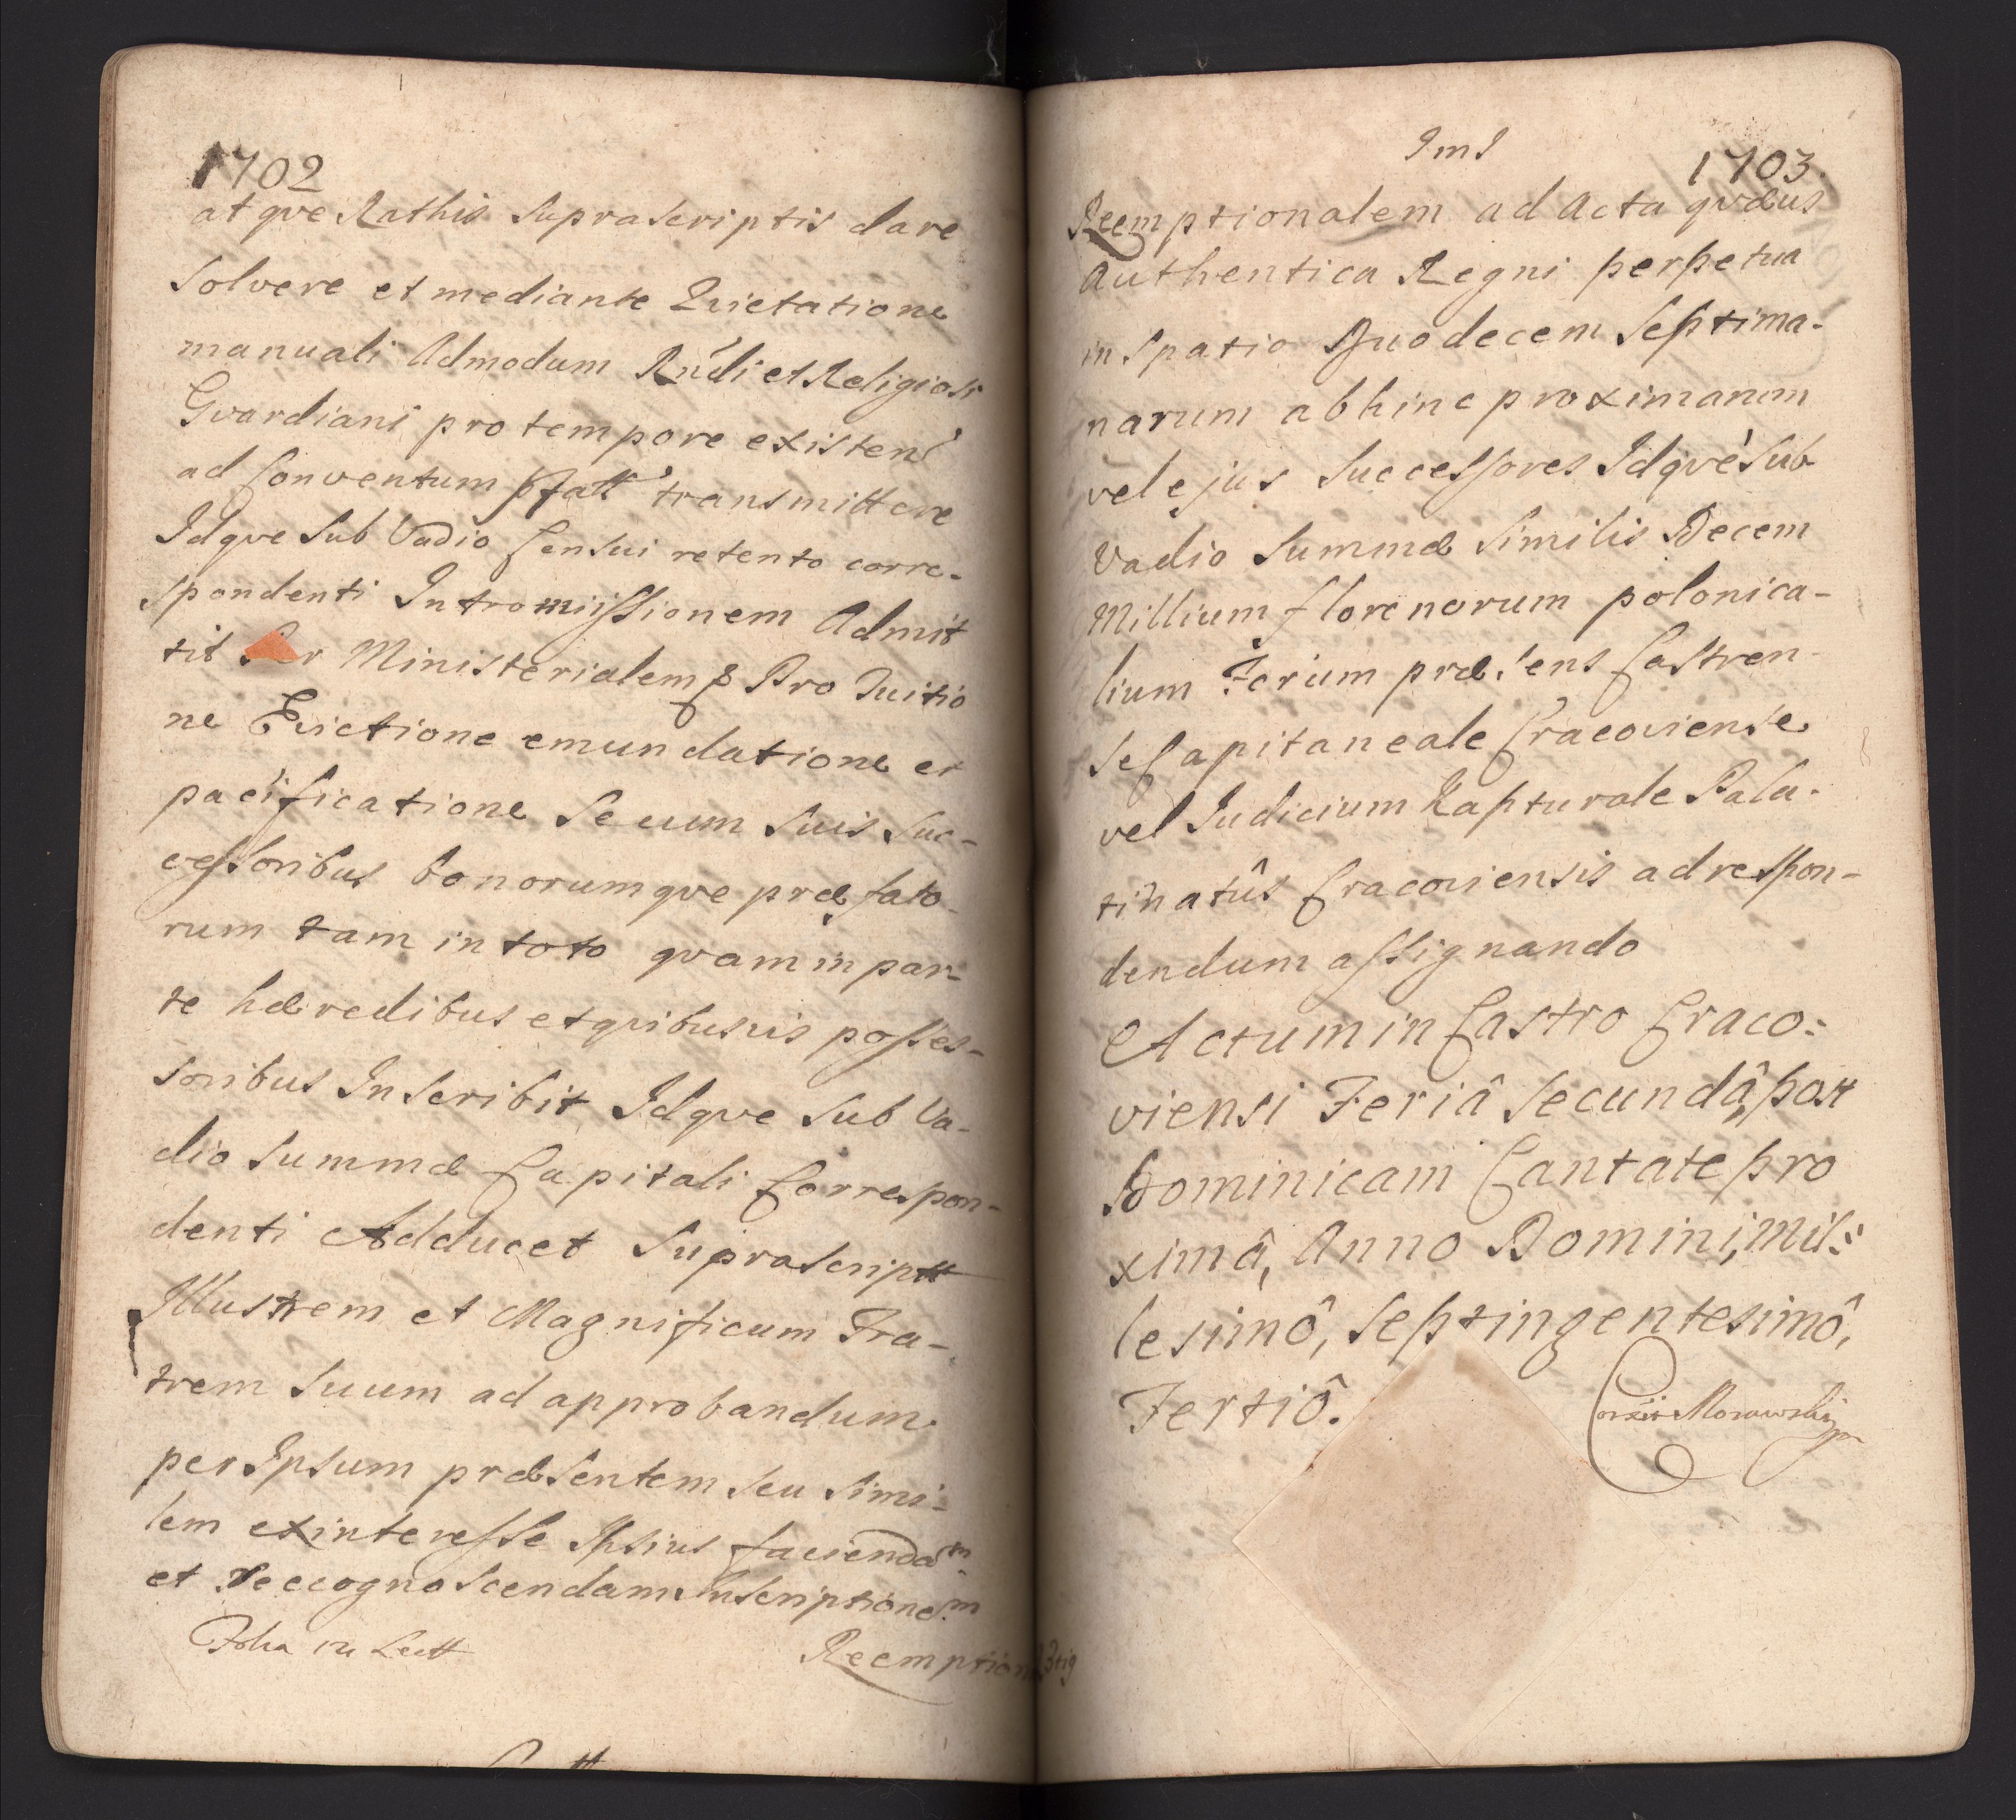 1702
atqve Rathis Supra Scriptis dare
Solvere et mediante Quietatione
manuali Admodum Rndi et Religiosi
Gvardiani pro tempore existen
ad Conventum pfatt transmittere
Idqve Sub Vadio Censui retento corre-
spondenti Intromissionem Admit
tit Per Ministerialem Pro Tuitio
ne Evictione emundatione et
pacificatione Secum Suis Suc-
cessoribus bonorumqve præfato-
rum tam in toto qvam in par-
te hæredibus et qvibusvis posses-
soribus Inscribit Idqve Sub Va-
dio Summæ Capitali Correspon-
denti Adducet Suprascriptt
Illustrem et Magnificum Fra-
trem Suum ad approbandum
per Ipsum præsentem Seu Simi-
lem ex interesse Ipsius faciendam
et Reccognoscendam Inscriptionem
Reemption
1703.
Reemptionalem ad Acta qvævis
Authentica Regni perpetua
in Spatio Duodecem Septima-
narum abhinc proximarum
vel ejus Successores Idqvè Sub
Vadio Summæ Similis Decem
Millium florenorum polonica-
lium Forum præsens Castren-
se Capitaneale Cracoviense
vel Judicium Kapturale Pala-
tinatûs Cracoviensis ad respon-
dendum assignando
Actum in Castro Craco:
viensi Feriâ Secundâ, post
Dominicam Cantate pro
ximâ, Anno Domini, Mil:
lesimô, Septingentesimô,
Tertiô.